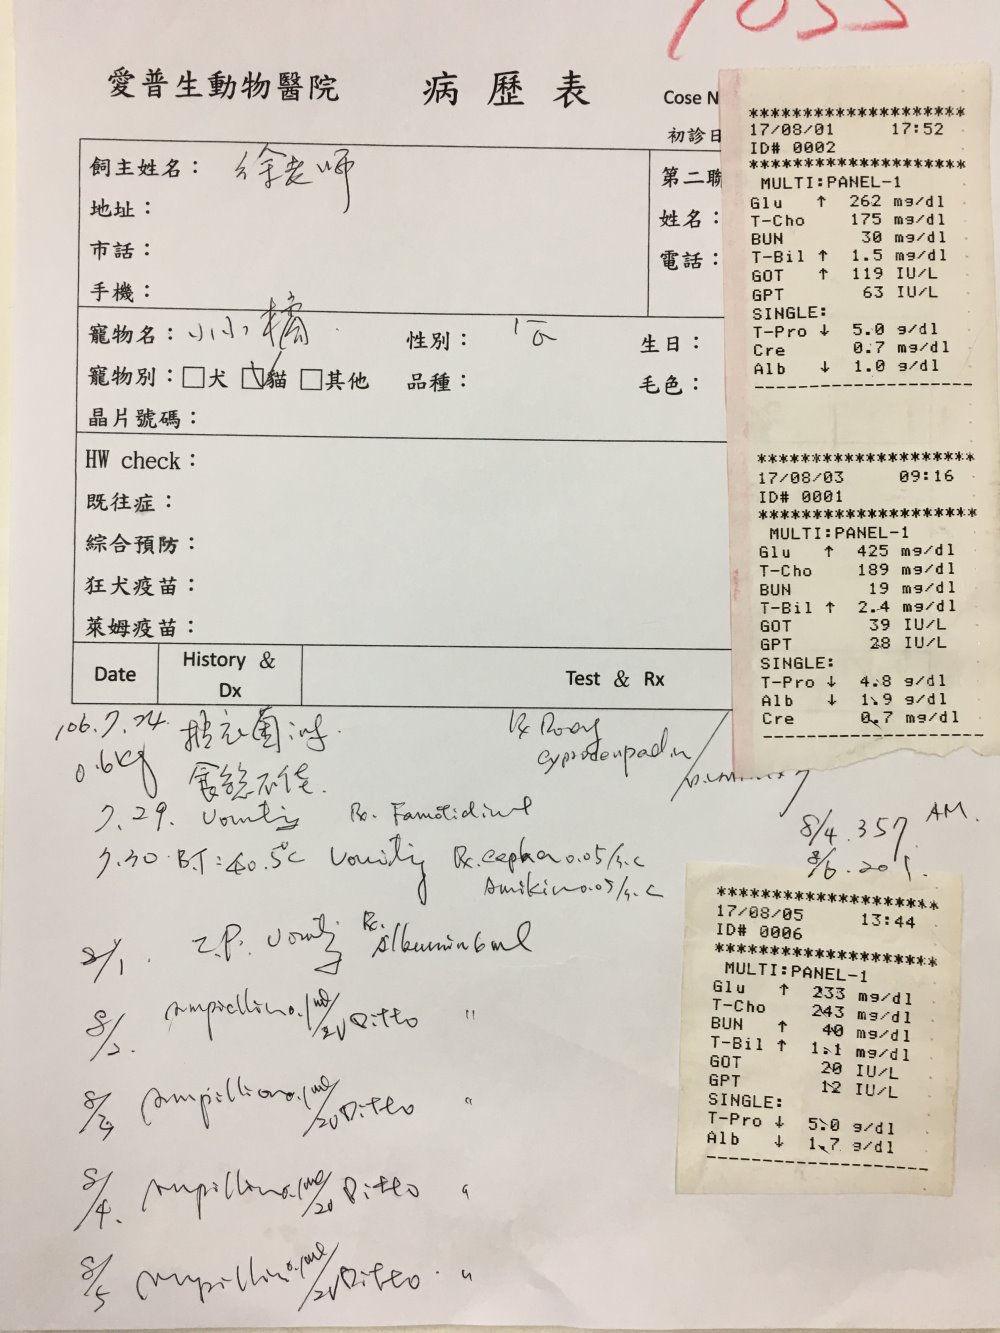 愛普生動物醫院 病歷表
Cose N
初診日
飼主姓名： 徐老師
地址：
市話：
手機：
第二聯
姓名：
電話：
寵物名： 小小橘
性別：
生日：
寵物別：□犬 □貓 □其他
品種：
毛色：
晶片號碼：
HW check：
既往症：
綜合預防：
狂犬疫苗：
萊姆疫苗：
Date
History & Dx
Test & Rx
106.7.24.
0.6kg
食慾不佳.
7.29. Vomiting Rx. Famotidine
7.30 B.T:40.5°C Vomiting Rx. 0.05/s.c
Amikin 0.05/s.c
8/1. I.P. Vomiting Rx. Albumin 6ml
8/2. Ampicillin 0.1ml/20 Ditto "
Ampicillin 0.1ml/20 Ditto "
8/4. Ampicillin 0.1ml/20 Ditto "
8/5 Ampicillin 0.1ml/20 Ditto "
********************
17/08/01 17:52
ID# 0002
********************
MULTI:PANEL-1
Glu ↑ 262 mg/dl
T-Cho 175 mg/dl
BUN 30 mg/dl
T-Bil ↑ 1.5 mg/dl
GOT ↑ 119 IU/L
GPT 63 IU/L
SINGLE:
T-Pro ↓ 5.0 g/dl
Cre 0.7 mg/dl
Alb ↓ 1.0 g/dl
--------------------
********************
17/08/03 09:16
ID# 0001
********************
MULTI:PANEL-1
Glu ↑ 425 mg/dl
T-Cho 189 mg/dl
BUN 19 mg/dl
T-Bil ↑ 2.4 mg/dl
GOT 39 IU/L
GPT 28 IU/L
SINGLE:
T-Pro ↓ 4.8 g/dl
Alb ↓ 1.9 g/dl
Cre 0.7 mg/dl
--------------------
8/4.357 AM.
8/6.201.
********************
17/08/05 13:44
ID# 0006
********************
MULTI:PANEL-1
Glu ↑ 233 mg/dl
T-Cho 243 mg/dl
BUN ↑ 40 mg/dl
T-Bil ↑ 1.1 mg/dl
GOT 20 IU/L
GPT 12 IU/L
SINGLE:
T-Pro ↓ 5.0 g/dl
Alb ↓ 1.7 g/dl
--------------------